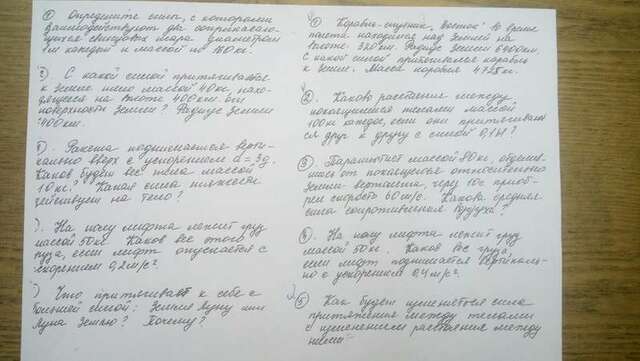 ① Определите силы, с которыми
взаимодействуют два соприкасаю-
щихся свинцовых шара диаметрам
1м каждый и массой по 150 кг.
② С какой силой притягивается
к Земле тело массой 40кг, нахо-
дящееся на высоте 400 км от
поверхности Земли? Радиус Земли
6400 км.
Ракета поднимается верти-
кально вверх с ускорением a = 3g.
Каков будет вес тела массой
10 кг? Какая сила тяжести
действует на тело?
На полу лифта лежит груз
массой 50 кг. Каков вес этого
груза, если лифт опускается с
ускорением 0,2 м/с².
Что притягивает к себе с
большей силой: Земля Луну или
Луна Землю? Почему?
① Корабль-спутник "Восток" во время
полета находился над Землей на
высоте 320 км. Радиус Земли 6400км.
С какой силой притягивался корабль
к Земле. Масса корабля 4725кг.
② Каково расстояние между
покоящимися телами массой
100 кг каждое, если они притягивают
ся друг к другу с силой 0,1Н?
③ Парашютист массой 80кг, отделив-
шись от покоящегося относительно
Земли вертолета, через 10с приоб-
рел скорость 60 м/с. Какова средняя
сила сопротивления воздуха?
④ На полу лифта лежит груз
массой 50кг. Каков вес груза,
если лифт поднимается вертикаль-
но с ускорением 0,4 м/с².
⑤ Как будет изменяться сила
притяжения между телами
с изменением расстояния между
ними